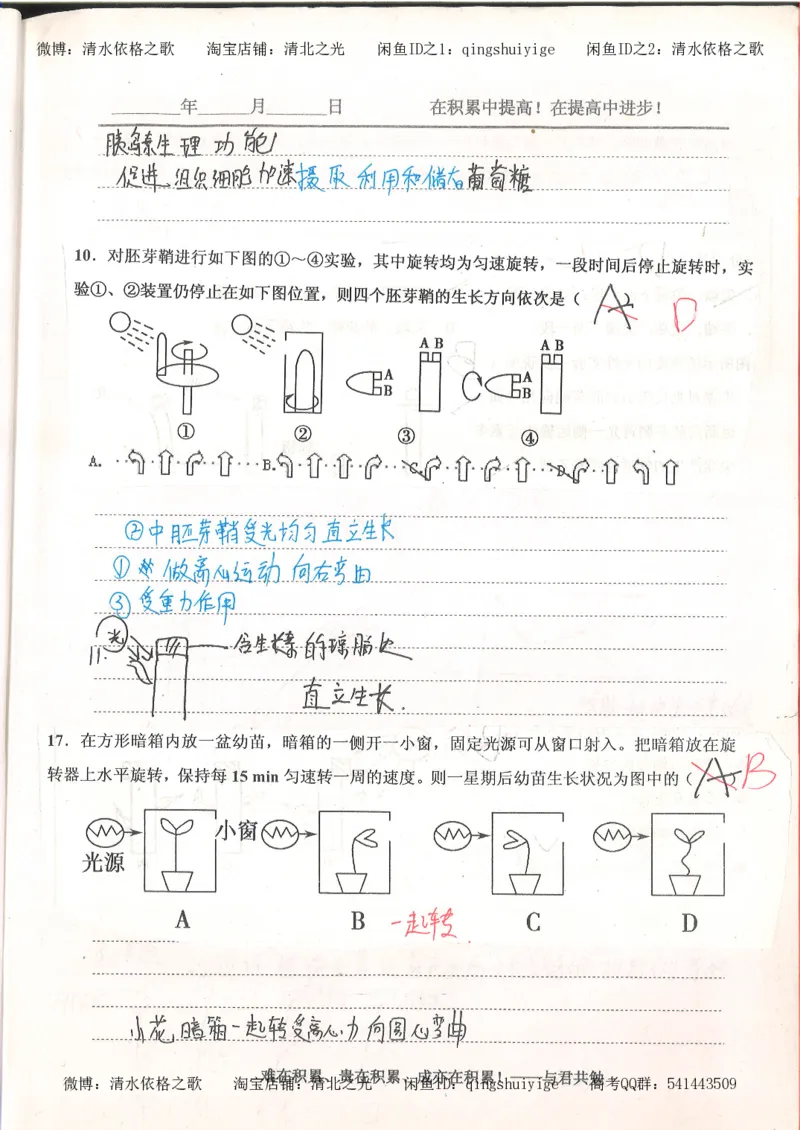 微博：清水依格之歌 淘宝店铺：清北之光 闲鱼ID之1：qingshuiyige 闲鱼ID之2：清水依格之歌
年 月 日 在积累中提高！在提高中进步！
胰岛素生理功能
促进 组织细胞加速摄取利用和储存葡萄糖
10．对胚芽鞘进行如下图的①～④实验，其中旋转均为匀速旋转，一段时间后停止旋转时，实
验①、②装置仍停止在如下图位置，则四个胚芽鞘的生长方向依次是（ A ） D
A B A B
A B A B
① ② ③ ④
A. B. C. D.
②中胚芽鞘受光均匀直立生长
① 做离心运动 向右弯曲
③受重力作用
光 含生长素的琼脂块
11.
直立生长.
17．在方形暗箱内放一盆幼苗，暗箱的一侧开一小窗，固定光源可从窗口射入。把暗箱放在旋
转器上水平旋转，保持每 15 min 匀速转一周的速度。则一星期后幼苗生长状况为图中的（ A ） B
小窗
光源
A B 一起转 C D
小花,暗箱一起转受离心力 向圆心弯曲
难在积累，贵在积累，成亦在积累！——与君共勉
微博：清水依格之歌 淘宝店铺：清北之光 闲鱼ID：qingshuiyige 高考QQ群：541443509